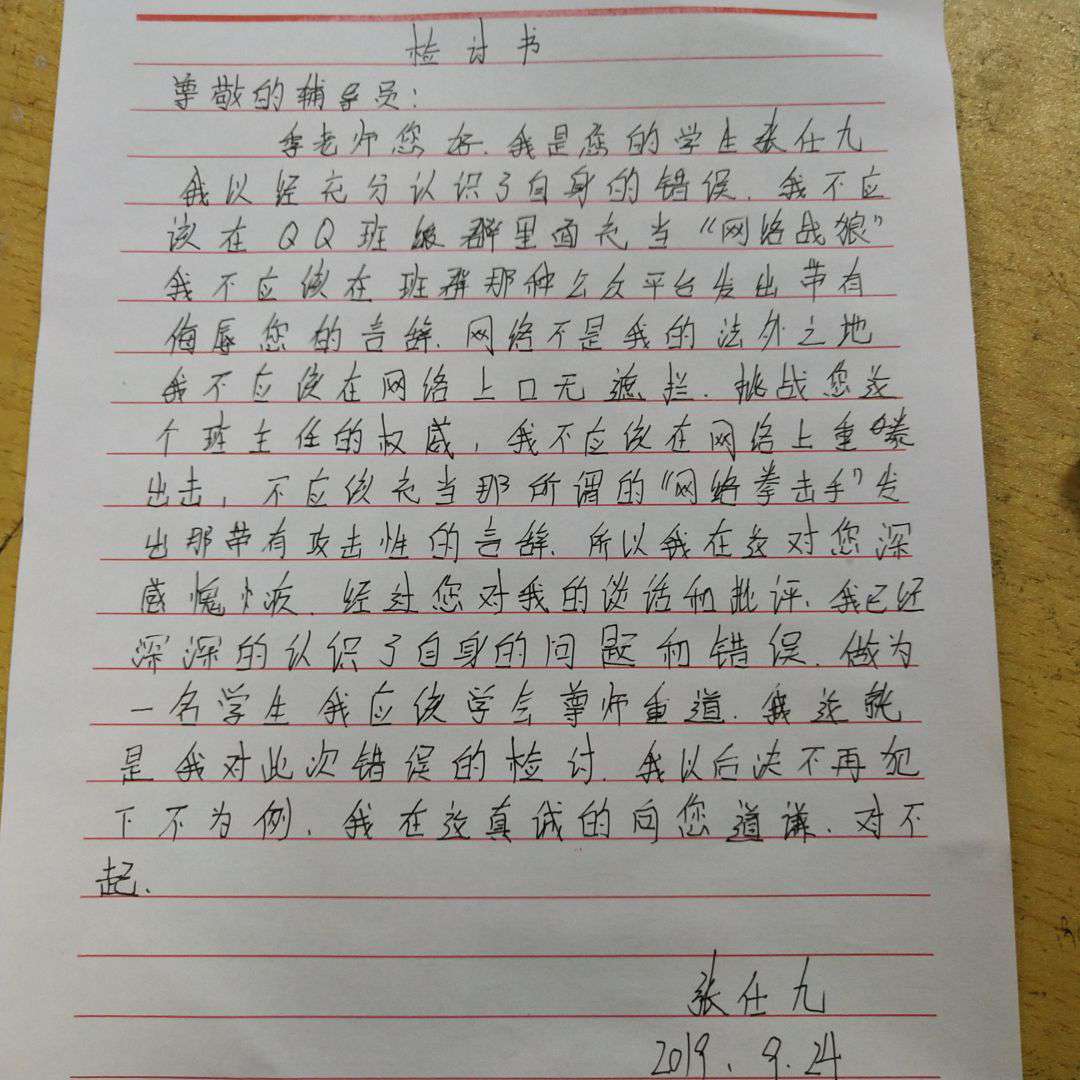 检讨书
尊敬的辅导员：
李老师您好.我是您的学生张仕九
我以经充分认识了自身的错误.我不应
该在QQ班级群里面充当“网络战狼”
我不应该在班群那种公众平台发出带有
侮辱您的言辞.网络不是我的法外之地
我不应该在网络上口无遮拦.挑战您这
个班主任的权威,我不应该在网络上重拳
出击,不应该充当那所谓的“网络拳击手”发
出那带有攻击性的言辞.所以我在这对您深
感愧疚.经过您对我的谈话和批评.我已经
深深的认识了自身的问题和错误.做为
一名学生我应该学会尊师重道.我这就
是我对此次错误的检讨.我以后决不再犯
下不为例.我在这真诚的向您道谦.对不
起.
张仕九
2019.9.24